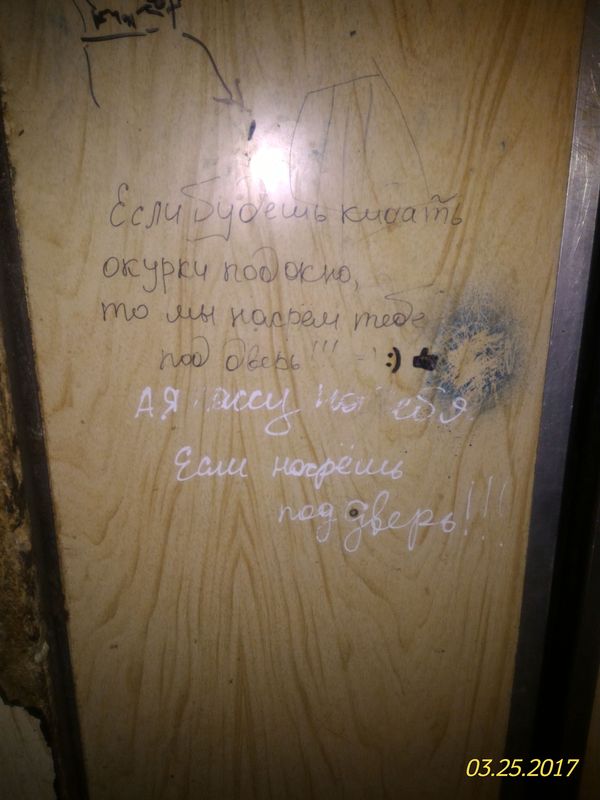 Если будешь кидать
окурки под окно,
то мы насрем тебе
под дверь!!! :)
А Я на
Если насрёшь
под дверь!!!
03.25.2017